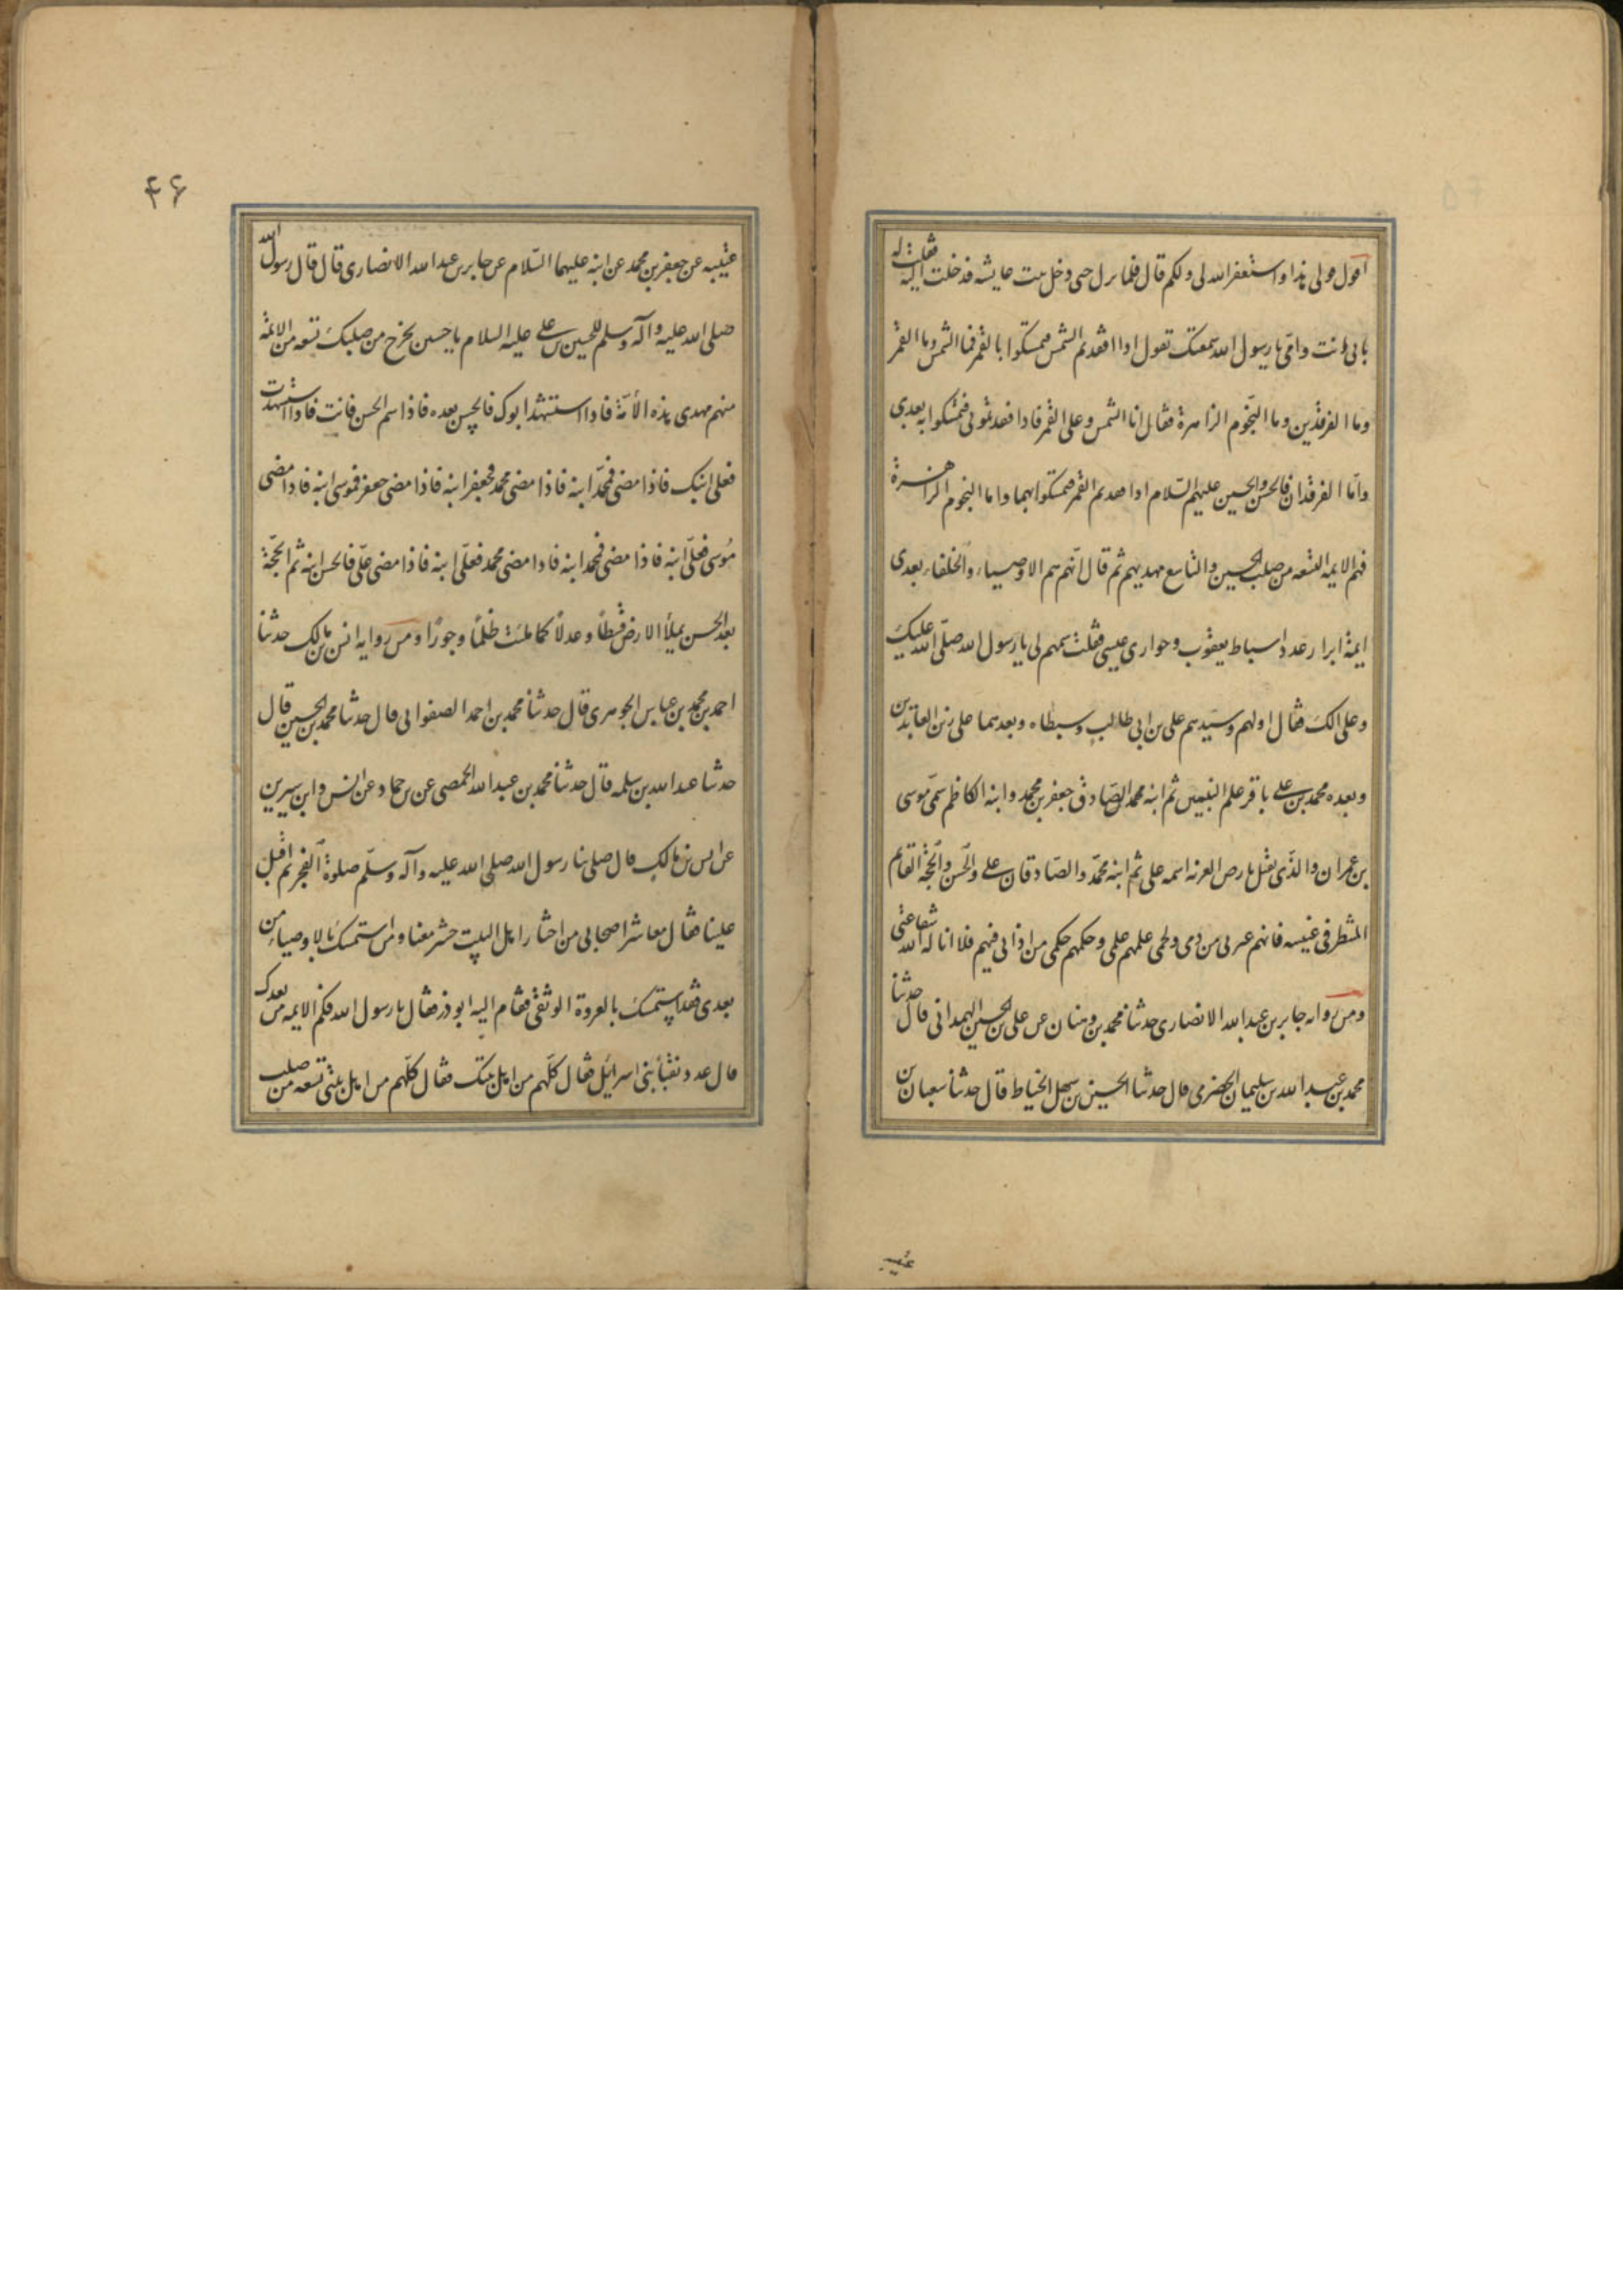 اقول قولی هذا واستغفر الله لی ولکم قال فلما نزل حتی دخل بیت عایشه فدخلت الیه فقلت له
بابی انت وامی یا رسول الله سمعتک تقول اذا افتقدتم الشمس فتمسکوا بالقمر فما الشمس وما القمر
وما الفرقدین وما النجوم الزاهرة فقال انا الشمس وعلی القمر فاذا فقدتمونی فتمسکوا به بعدی
واما الفرقدان فالحسن والحسین علیهم السلام اذا فقدتم القمر فتمسکوا بهما واما النجوم الزاهرة
فهم الایمه التسعه من صلب الحسین والتاسع مهدیهم ثم قال انهم هم الاوصیاء والخلفاء بعدی
ایمة ابرار عدد اسباط یعقوب وحواری عیسی فقلت سمهم لی یا رسول الله صلی الله علیک
وعلی الک فقال اولهم وسیدهم علی بن ابی طالب وسبطاه وبعدهما علی زین العابدین
وبعده محمد بن علی باقر علم النبیین ثم ابنه محمد الصادق جعفر بن محمد وابنه الکاظم سمی موسی
بن عمران والذی یقتل بارض الغربه اسمه علی ثم ابنه محمد والصادقان علی والحسن والحجة القایم
المنتظر فی غیبته فانهم عترتی من دمی ولحمی علمهم علمی وحکمهم حکمی من اذانی فیهم فلا اناله الله شفاعتی
ومن روایه جابر بن عبد الله الانصاری حدثنا محمد بن وهبان عن علی بن الحسین الهمدانی قال حدثنا
محمد بن عبد الله بن سلیمان الحضرمی قال حدثنا الحسین بن سهل الخیاط قال حدثنا سفیان بن
۴۶
عیینه عن جعفر بن محمد عن ابیه علیهما السلام عن جابر بن عبد الله الانصاری قال قال رسول الله
صلی الله علیه وآله وسلم للحسین بن علی علیه السلام یا حسین یخرج من صلبک تسعه من الائمة
منهم مهدی هذه الأمة فاذا استشهد ابوک فالحسن بعده فاذا سم الحسن فانت فاذا استشهدت
فعلی ابنک فاذا مضی فمحمد ابنه فاذا مضی محمد فجعفر ابنه فاذا مضی جعفر فموسی ابنه فاذا مضی
موسی فعلی ابنه فاذا مضی فمحمد ابنه فاذا مضی محمد فعلی ابنه فاذا مضی علی فالحسن ابنه ثم الحجة
بعد الحسن یملأ الارض قسطاً وعدلاً کما ملئت ظلماً وجوراً ومن روایه انس بن مالک حدثنا
احمد بن محمد بن عیاش الجوهری قال حدثنا محمد بن احمد الصفوانی قال حدثنا محمد بن الحسین قال
حدثنا عبد الله بن سلمه قال حدثنا محمد بن عبد الله الحمصی عن بن حماد عن انس وابن سیرین
عن انس بن مالک قال صلی بنا رسول الله صلی الله علیه وآله وسلم صلوة الفجر ثم اقبل
علینا فقال معاشر اصحابی من احب اهل البیت حشر معنا ومن استمسک بالاوصیاء من
بعدی فقد استمسک بالعروة الوثقی فقام الیه ابوذر فقال یا رسول الله فکم الایمه من بعدک
قال عدد نقباء بنی اسرائیل فقال کلهم من اهل بیتک فقال کلهم من اهل بیتی تسعه من صلب